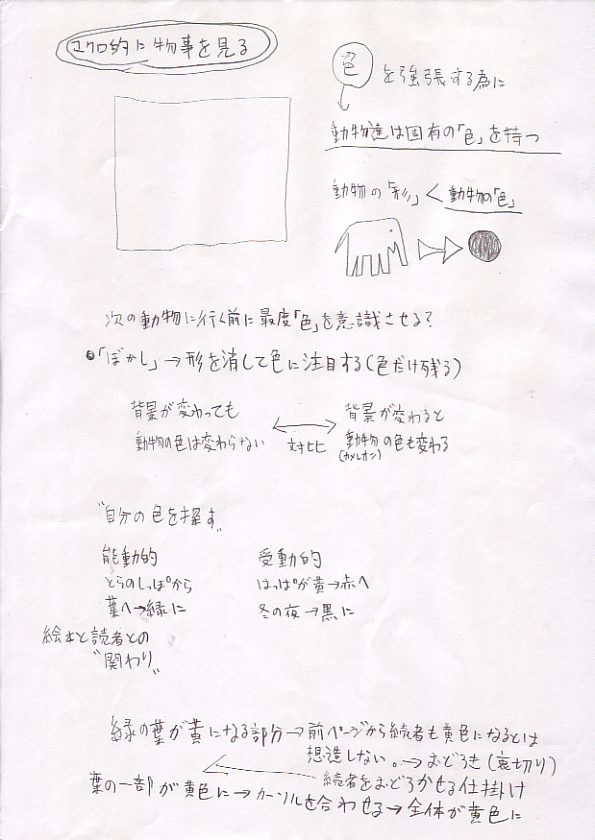 マクロ的に物事を見る
色を強張する為に
動物達は固有の「色」を持つ
動物の「形」<動物の「色」
次の動物に行く前に最度「色」を意識させる?
●「ぼかし」→形を消して色に注目する(色だけ残る)
背景が変わっても
動物の色は変わらない
対比
背景が変わると
動物の色も変わる
(カメレオン)
"自分の色を探す"
能動的
とらのしっぽから
葉へ→緑に
受動的
はっぱが黄→赤へ
冬の夜→黒に
絵本と読者との
"関わり"
緑の葉が黄になる部分→前ページから読者も黄色になるとは
想造しない。→おどろき(裏切り)
読者をおどろかせる仕掛け
葉の一部が黄色に→カーソルを合わせる→全体が黄色に